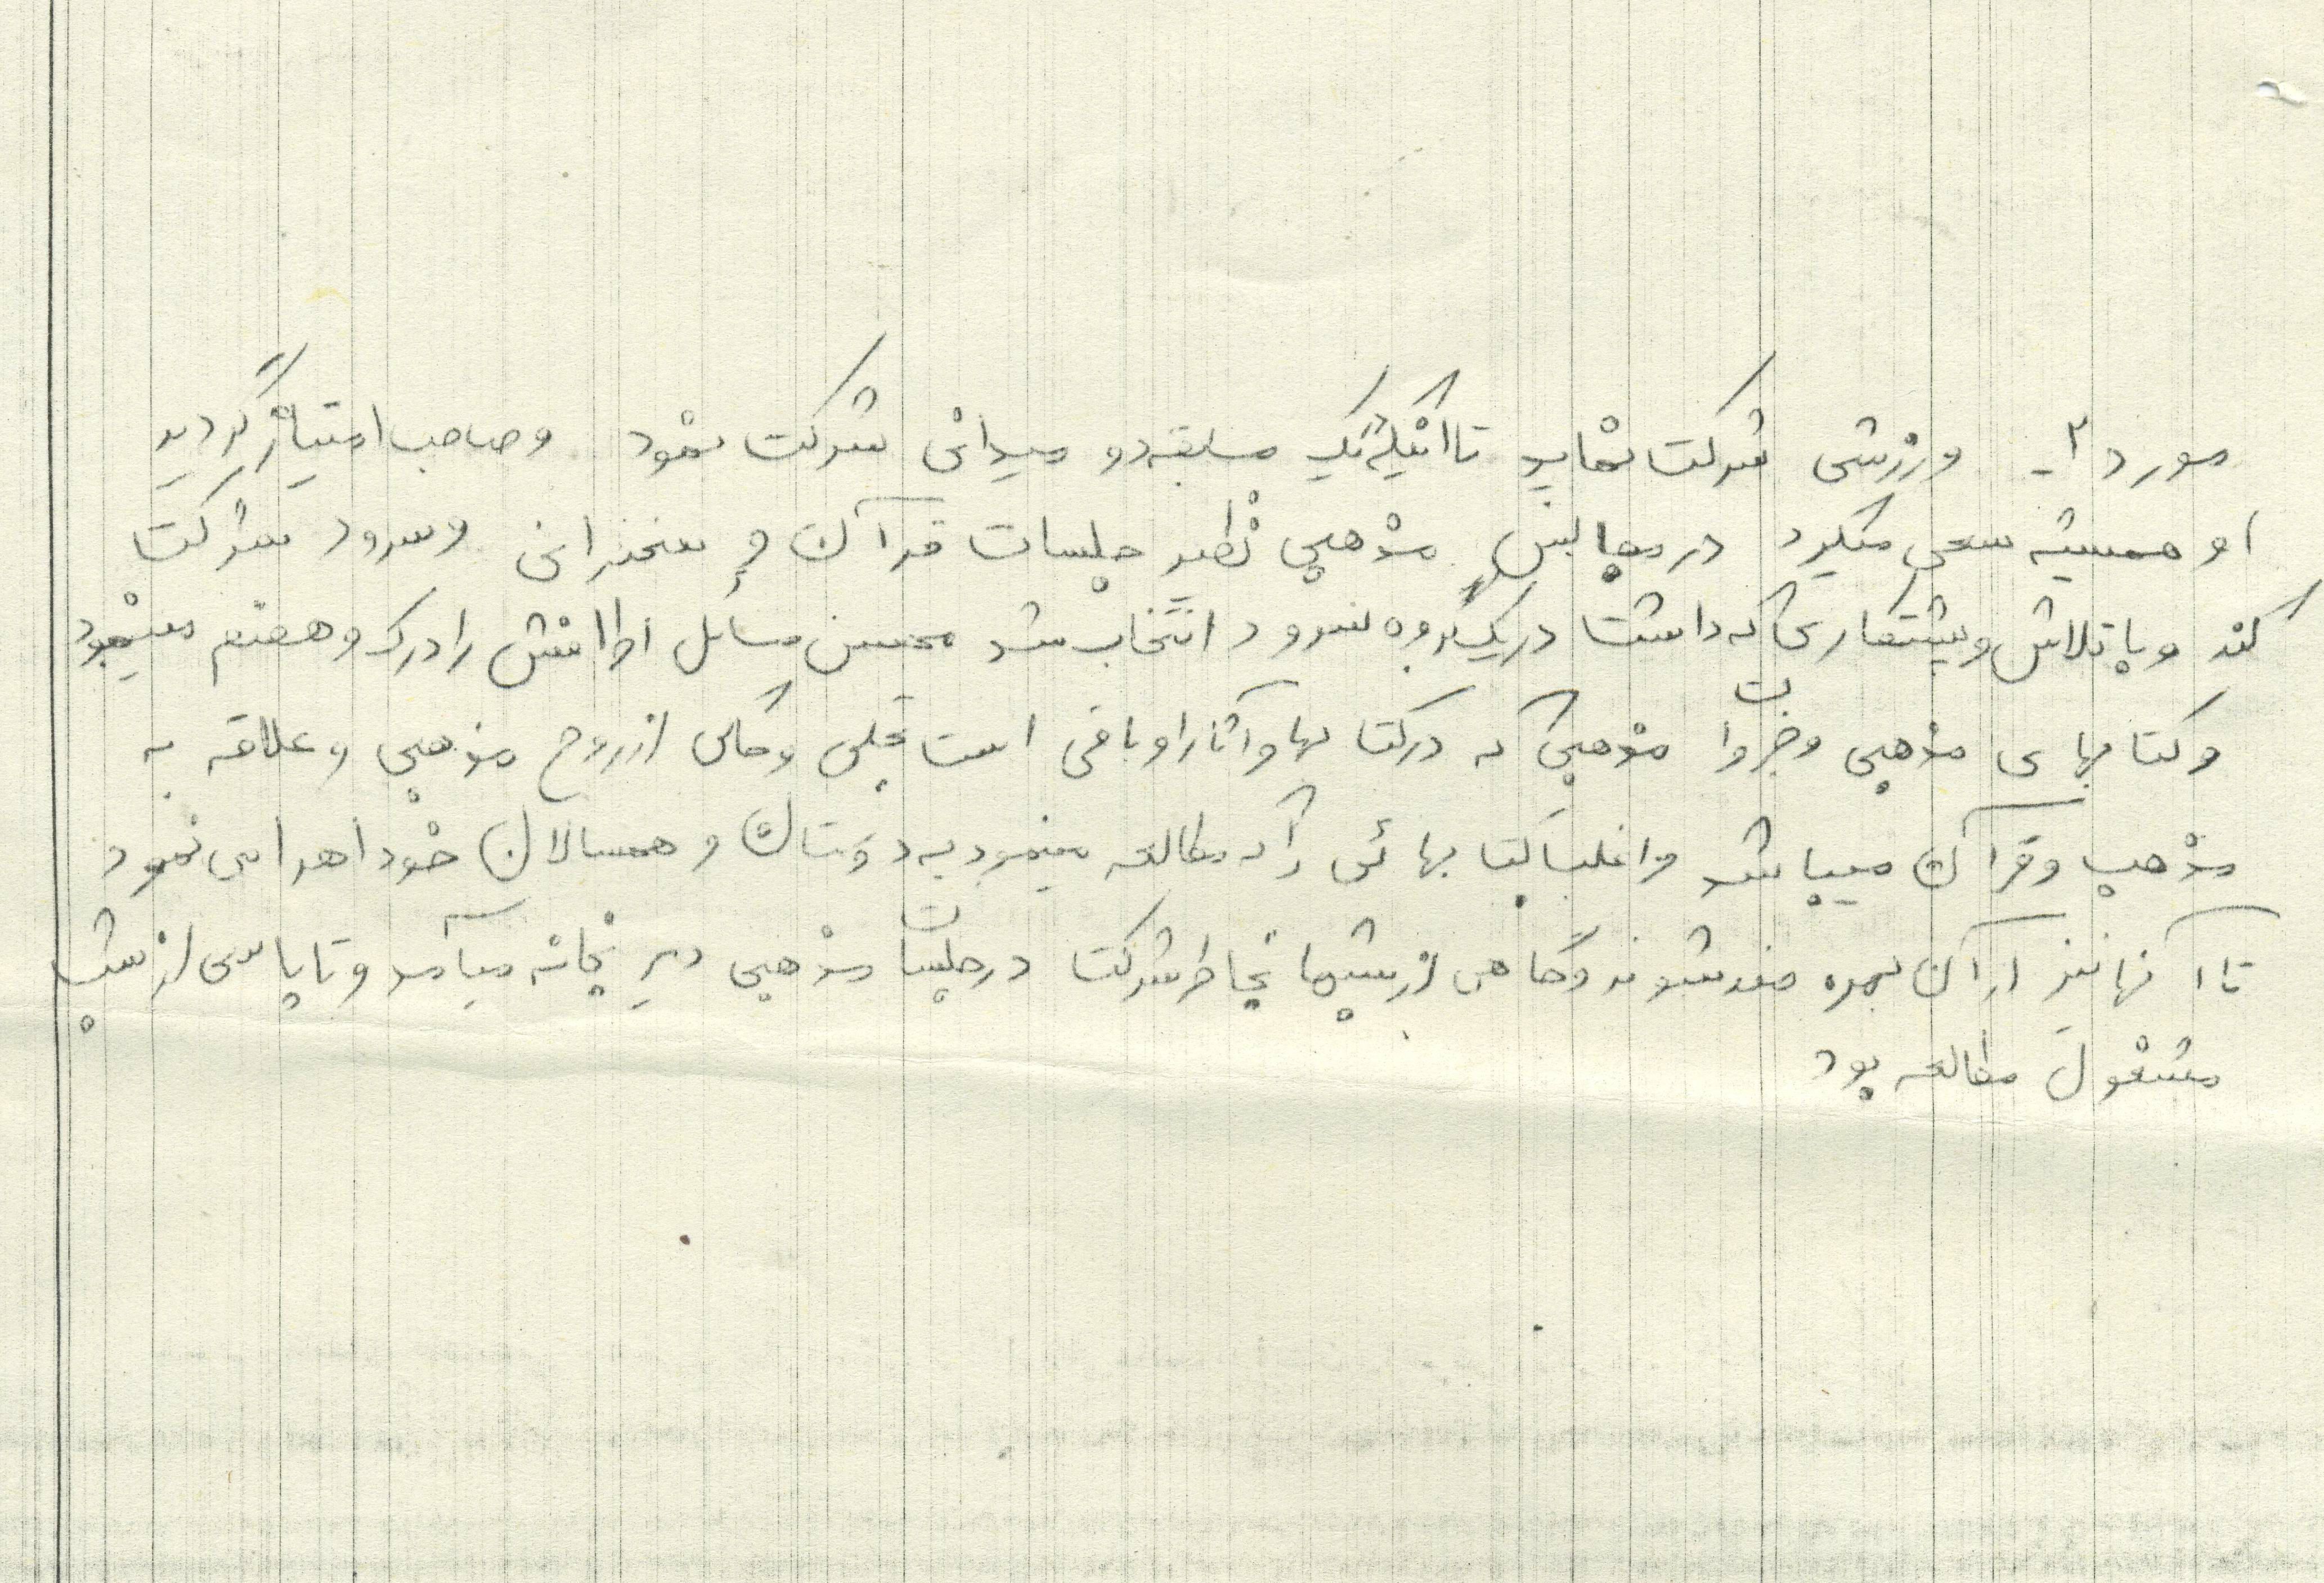 مورد ۲- ورزشی شرکت نماید تا اینکه یک مسابقه دو میدانی شرکت نمود و صاحب امتیاز گردید
او همیشه سعی میکرد در مجالس مذهبی نظیر جلسات قرآن و سخنرانی و سرود شرکت
کند و با تلاش و پشتکاری که داشت در یک گروه سرود انتخاب شد محسن مسائل اطرافش را درک و هضم مینمود
و کتابهای مذهبی و جزوات مذهبی که در کتابها و آثار او باقی است تجلی و حاکی از روح مذهبی و علاقه به
مذهب و قرآن میباشد و اغلب کتابهائی را که مطالعه مینمود به دوستان و همسالان خود اهدا می نمود
تا آنها نیز از آن بهره مند شوند و گاهی از شبها بخاطر شرکت در جلسات مذهبی دیر بخانه میآمد و تا پاسی از شب
مشغول مطالعه بود